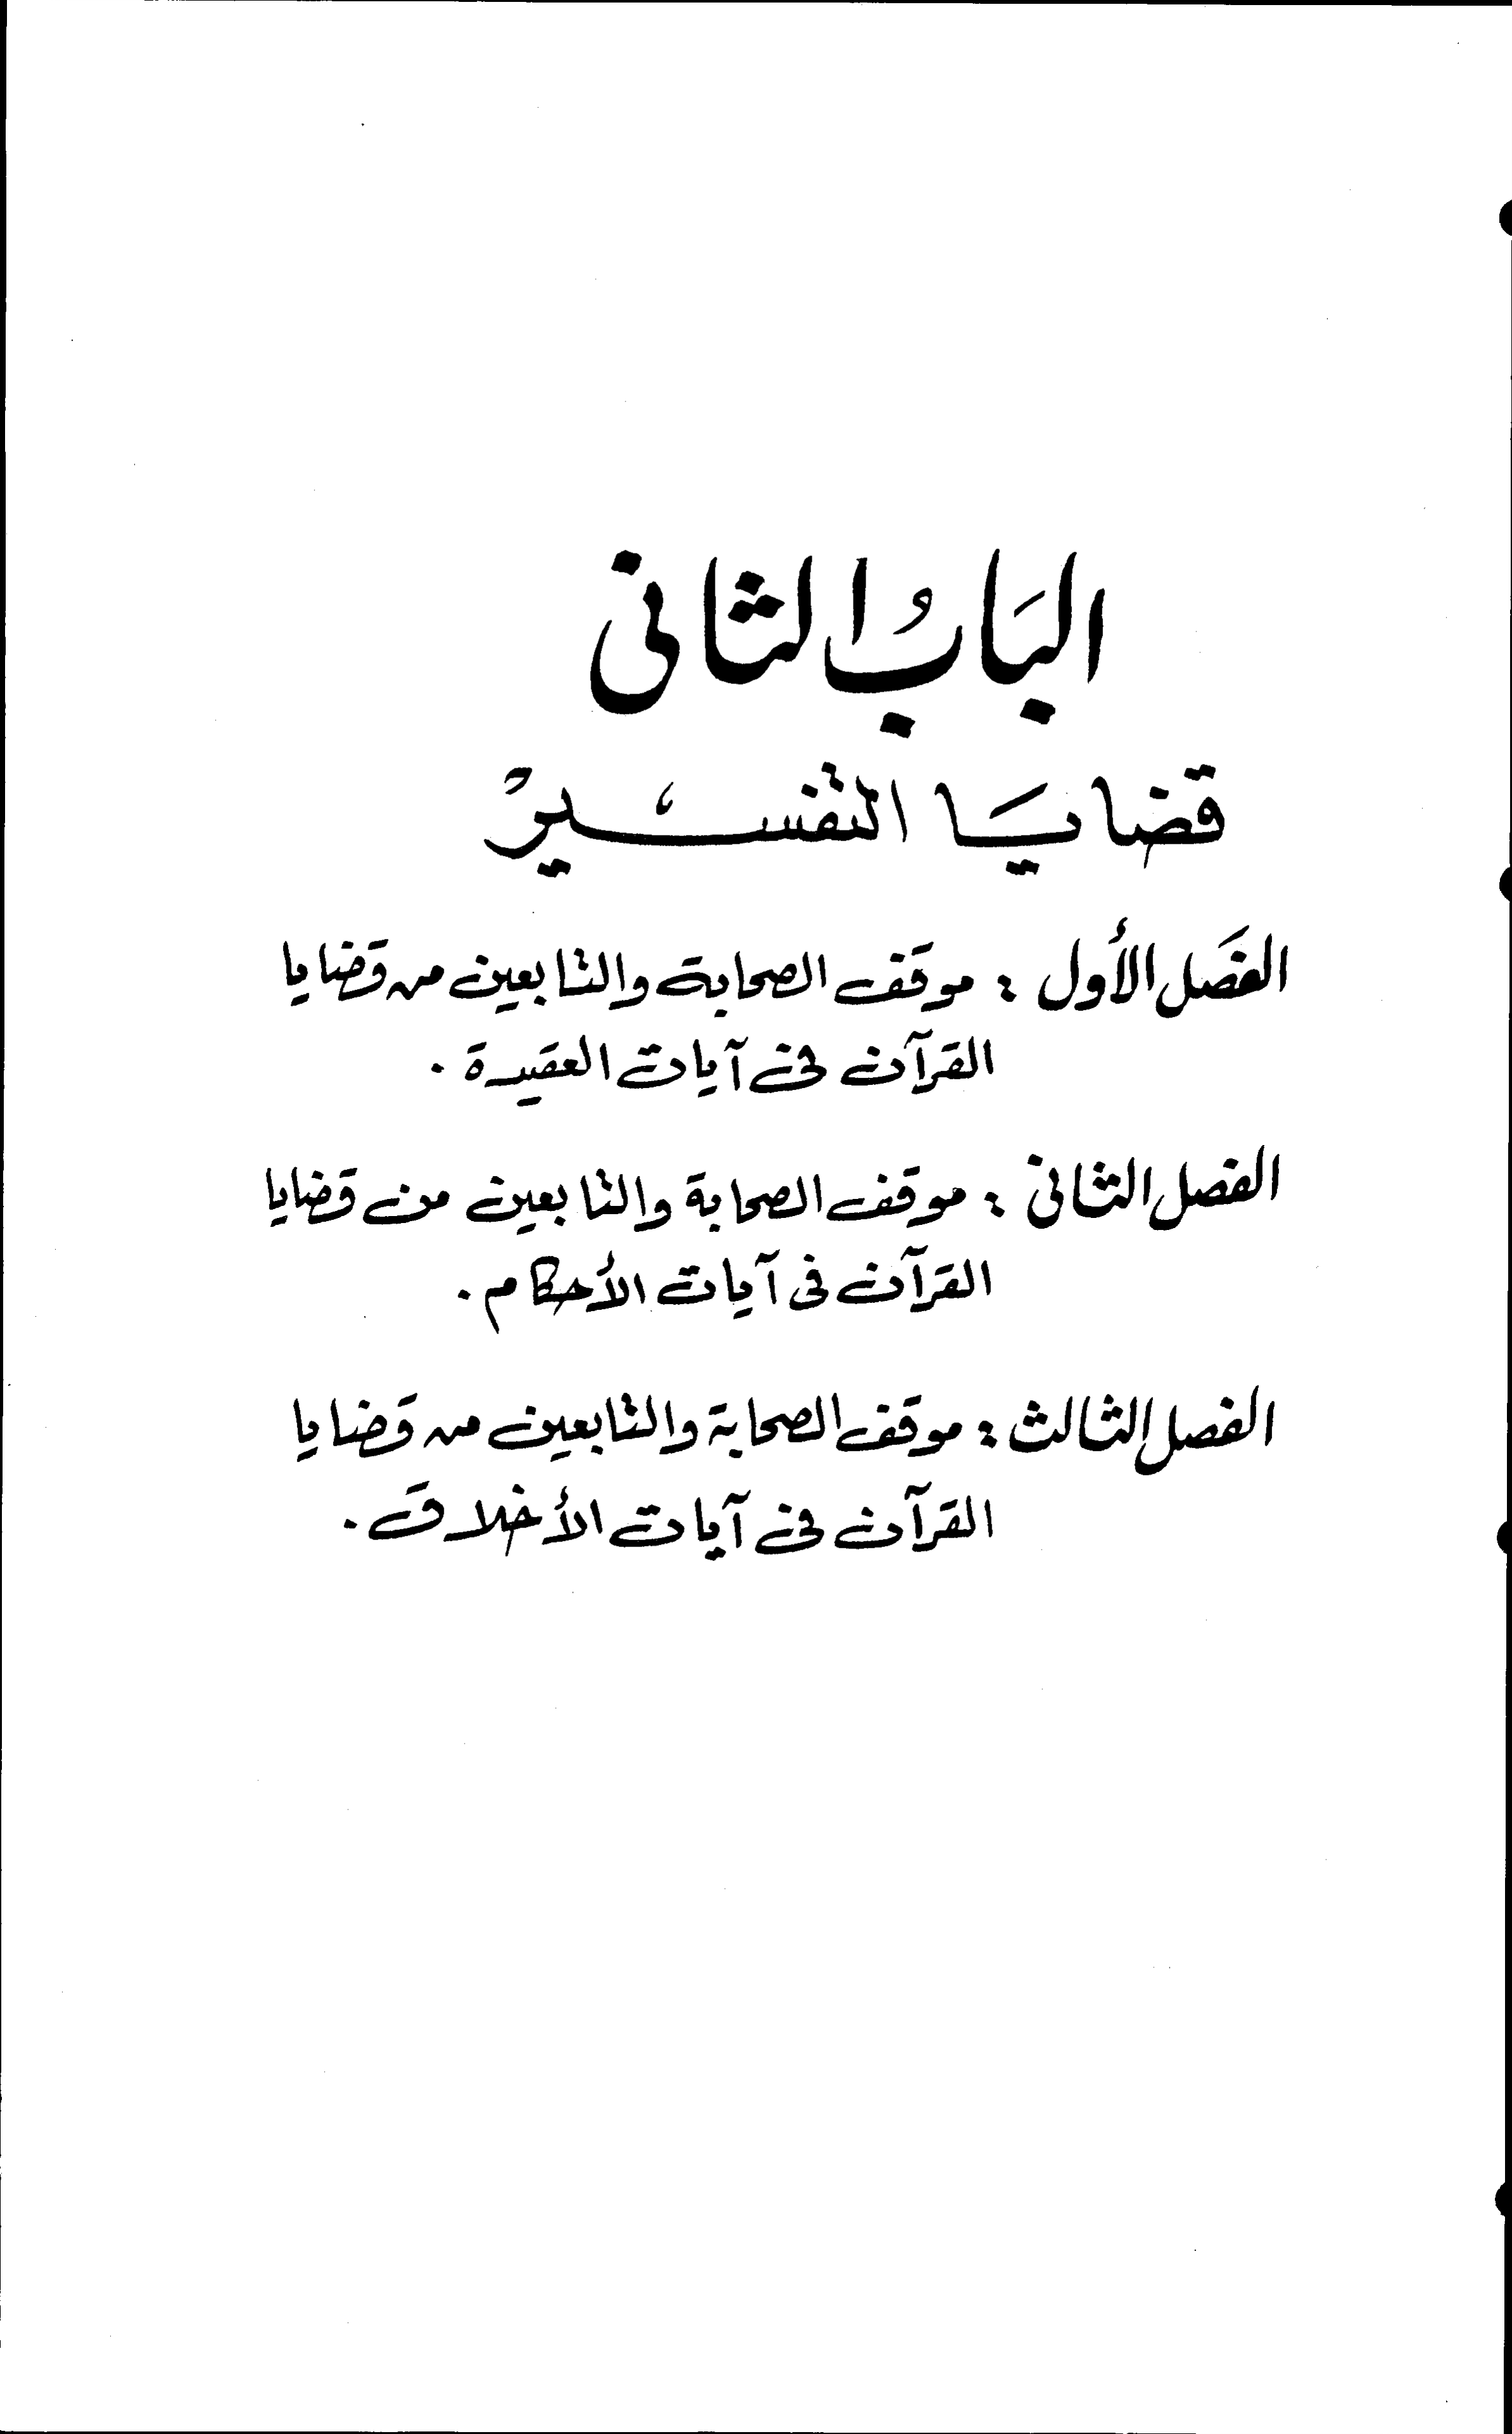 البَابُ الثانى
قضايَا التفسيرْ
الفَصل الأول : موقف الصحابة والتابعين من قضايا
القرآن فى آيات العقيدة .
الفصل الثانى : موقف الصحابة والتابعين من قضايا
القرآن فى آيات الأحكام .
الفصل الثالث : موقف الصحابة والتابعين من قضايا
القرآن فى آيات الأخلاق .